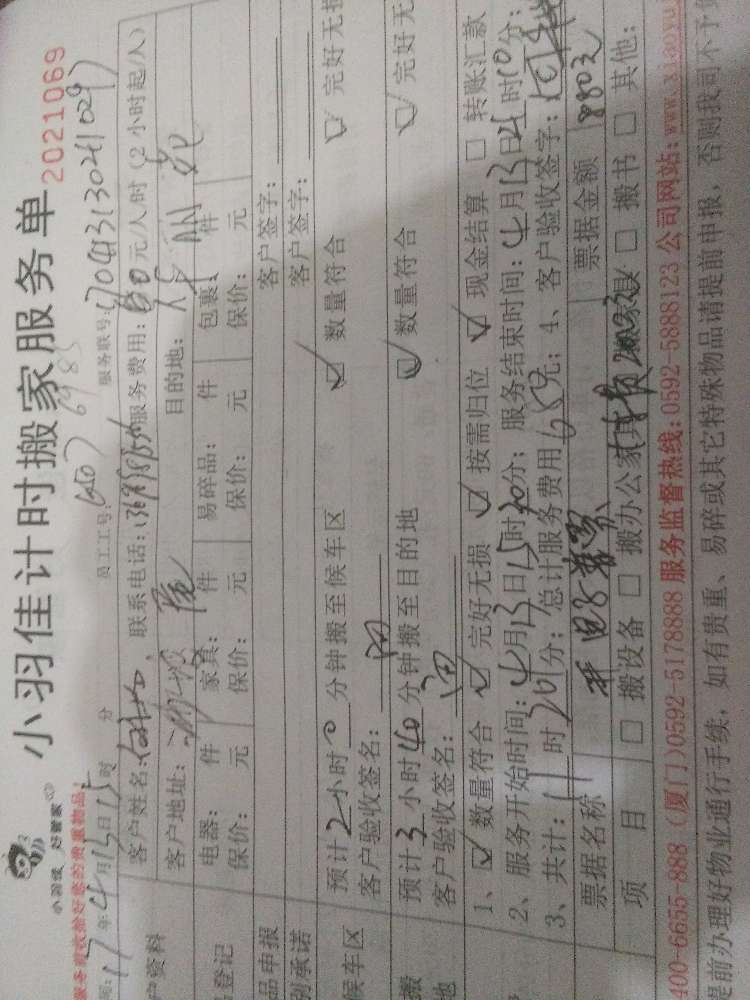 小羽佳 好管家
小羽佳计时搬家服务单
2021069
服务前收拾好您的贵重物品
17年4月13日15时 分 员工工号: 服务联号:
客户姓名: 联系电话: 服务费用: 元/人时（2小时起/人）
户资料
客户地址: 目的地:
电器: 件 家具: 件 易碎品: 件 包裹: 件
登记
保价: 元 保价: 元 保价: 元 保价: 元
品申报 客户签字:
别承诺 客户签字:
预计2小时0分钟搬至候车区 数量符合 完好无损
候车区
客户验收签名:
预计3小时40分钟搬至目的地 数量符合 完好无
搬
地
客户验收签名:
1、数量符合 完好无损 按需归位 现金结算 转账汇款
2、服务开始时间:4月13日15时20分; 服务结束时间:4月13日21时10分;
3、共计:11时20分; 总计服务费用650元; 4、客户验收签字:
票据名称 票据金额 880元
项目 搬设备 搬办公家具 搬家 搬书 其他:
400-6655-888（厦门)0592-5178888 服务监督热线:0592-5888123 公司网站:www.xiaoyu
提前办理好物业通行手续, 如有贵重、易碎或其它特殊物品请提前申报, 否则我司不予